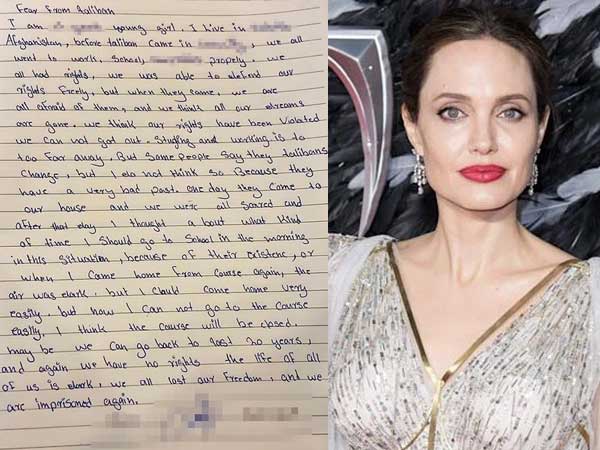 Fear From taliban
I am young girl. I live in
Afghanistan, before taliban came in , we all
went to work, School, propely. we
all had rights, we was able to defend our
rights Freely, but when they came, we are
all afraid of them, and we think all our dreams
are gone. we think our rights have been violated
we can not got out. Studying and working is to
too Far away. But Some people Say they talibans
change, but I do not think so Because they
have a very bad past. one day they came to
our house and we were all Scared and
after that day I thought a bout what kind
of time I Should go to School in the morning
in this situation, because of their existenc, or
when I came home From course again, the
air was dark. but I could come home very
easily. but now I can not go to the course
easily. I think the course will be closed.
may be we can go back to last 20 years,
and again we have no rights the life of all
of us is dark, we all lost our Freedom, and we
are imprisoned again.